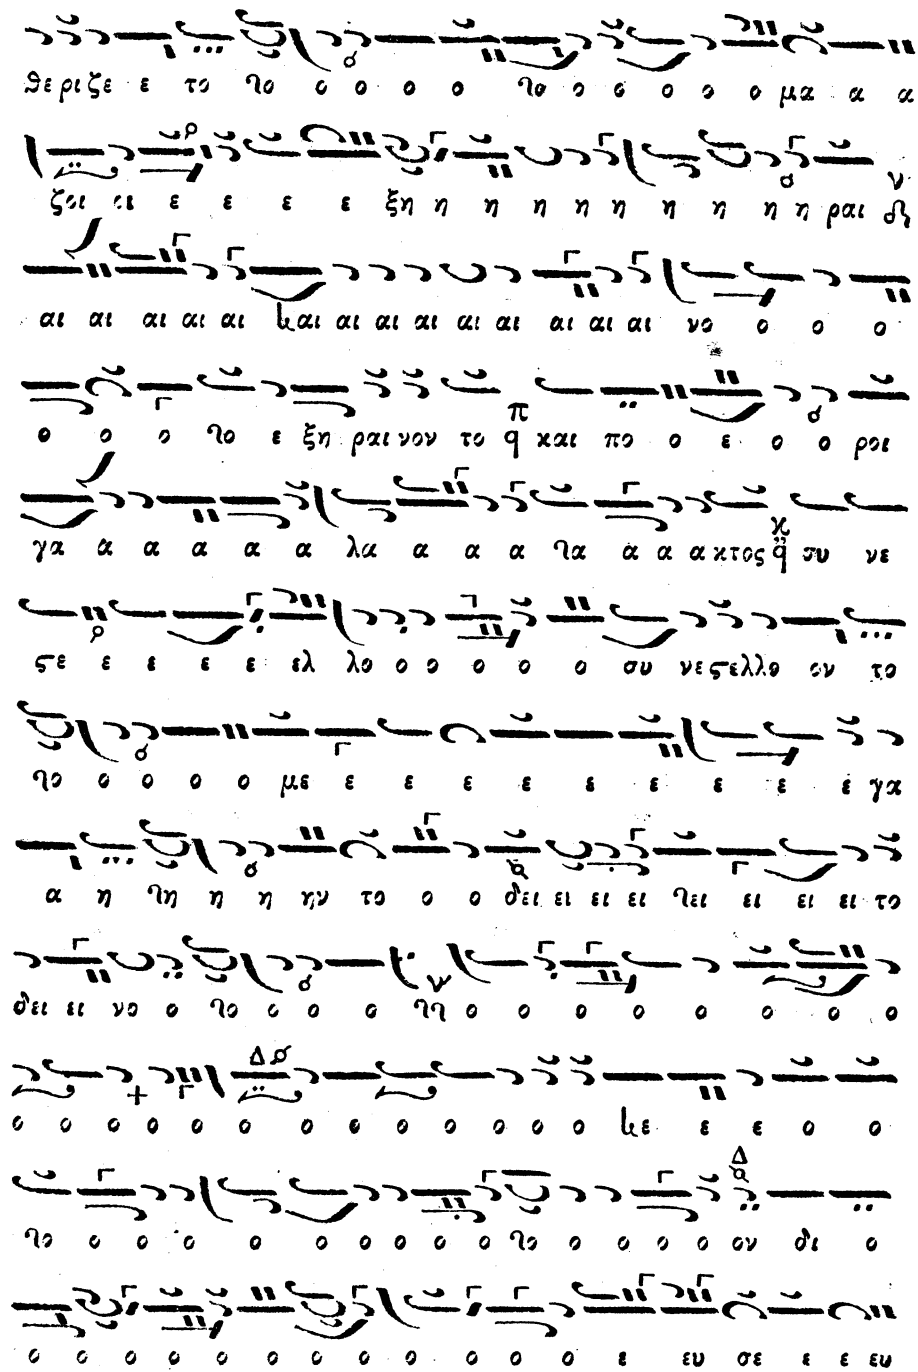 θε ρι ζε ε το το ο ο ο ο το ο ο ο ο ο μα α α
ζοι οι ε ε ε ε ξη η η η η η η η η η ραι
αι αι αι αι αι και αι αι αι αι αι αι αι αι νο ο ο ο
ο ο ο το ε ξη ραι νον το π q και πο ο ε ο ο ροι
γα α α α α α λα α α α τα α α α κτος q συ νε
ϛε ε ε ε ε ελ λο ο ο ο ο ο συ νε ϛελλο ον το
το ο ο ο ο με ε ε ε ε ε ε ε ε ε γα
α η τη η η ην το ο ο δει ει ει ει τει ει ει ει το
δει ει νο ο το ο ο ο ο ο ο ο ο ο ο ο
ο ο ο ο ο ο ο ο ο ο ο ο ο κε ε ε ο ο
το ο ο ο ο ο ο ο ο ο το ο ο ο ο ον δι ο
ο ο ο ο ο ο ο ο ο ο ο ο ε ευ σε ε ε ευ